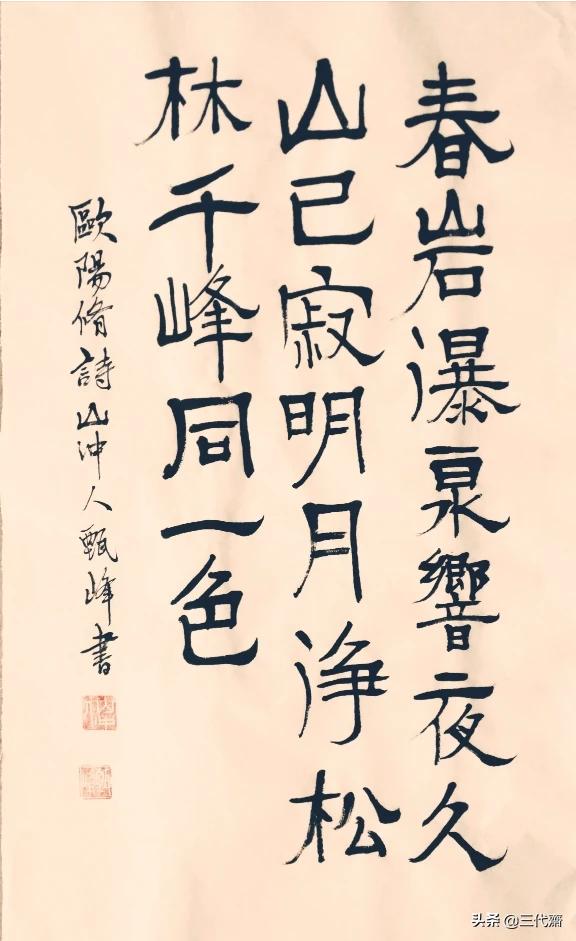 春岩瀑泉響夜久
山已寂明月浄松
林千峰同一色
歐陽脩詩山冲人甄峰書
头条 @三代齋